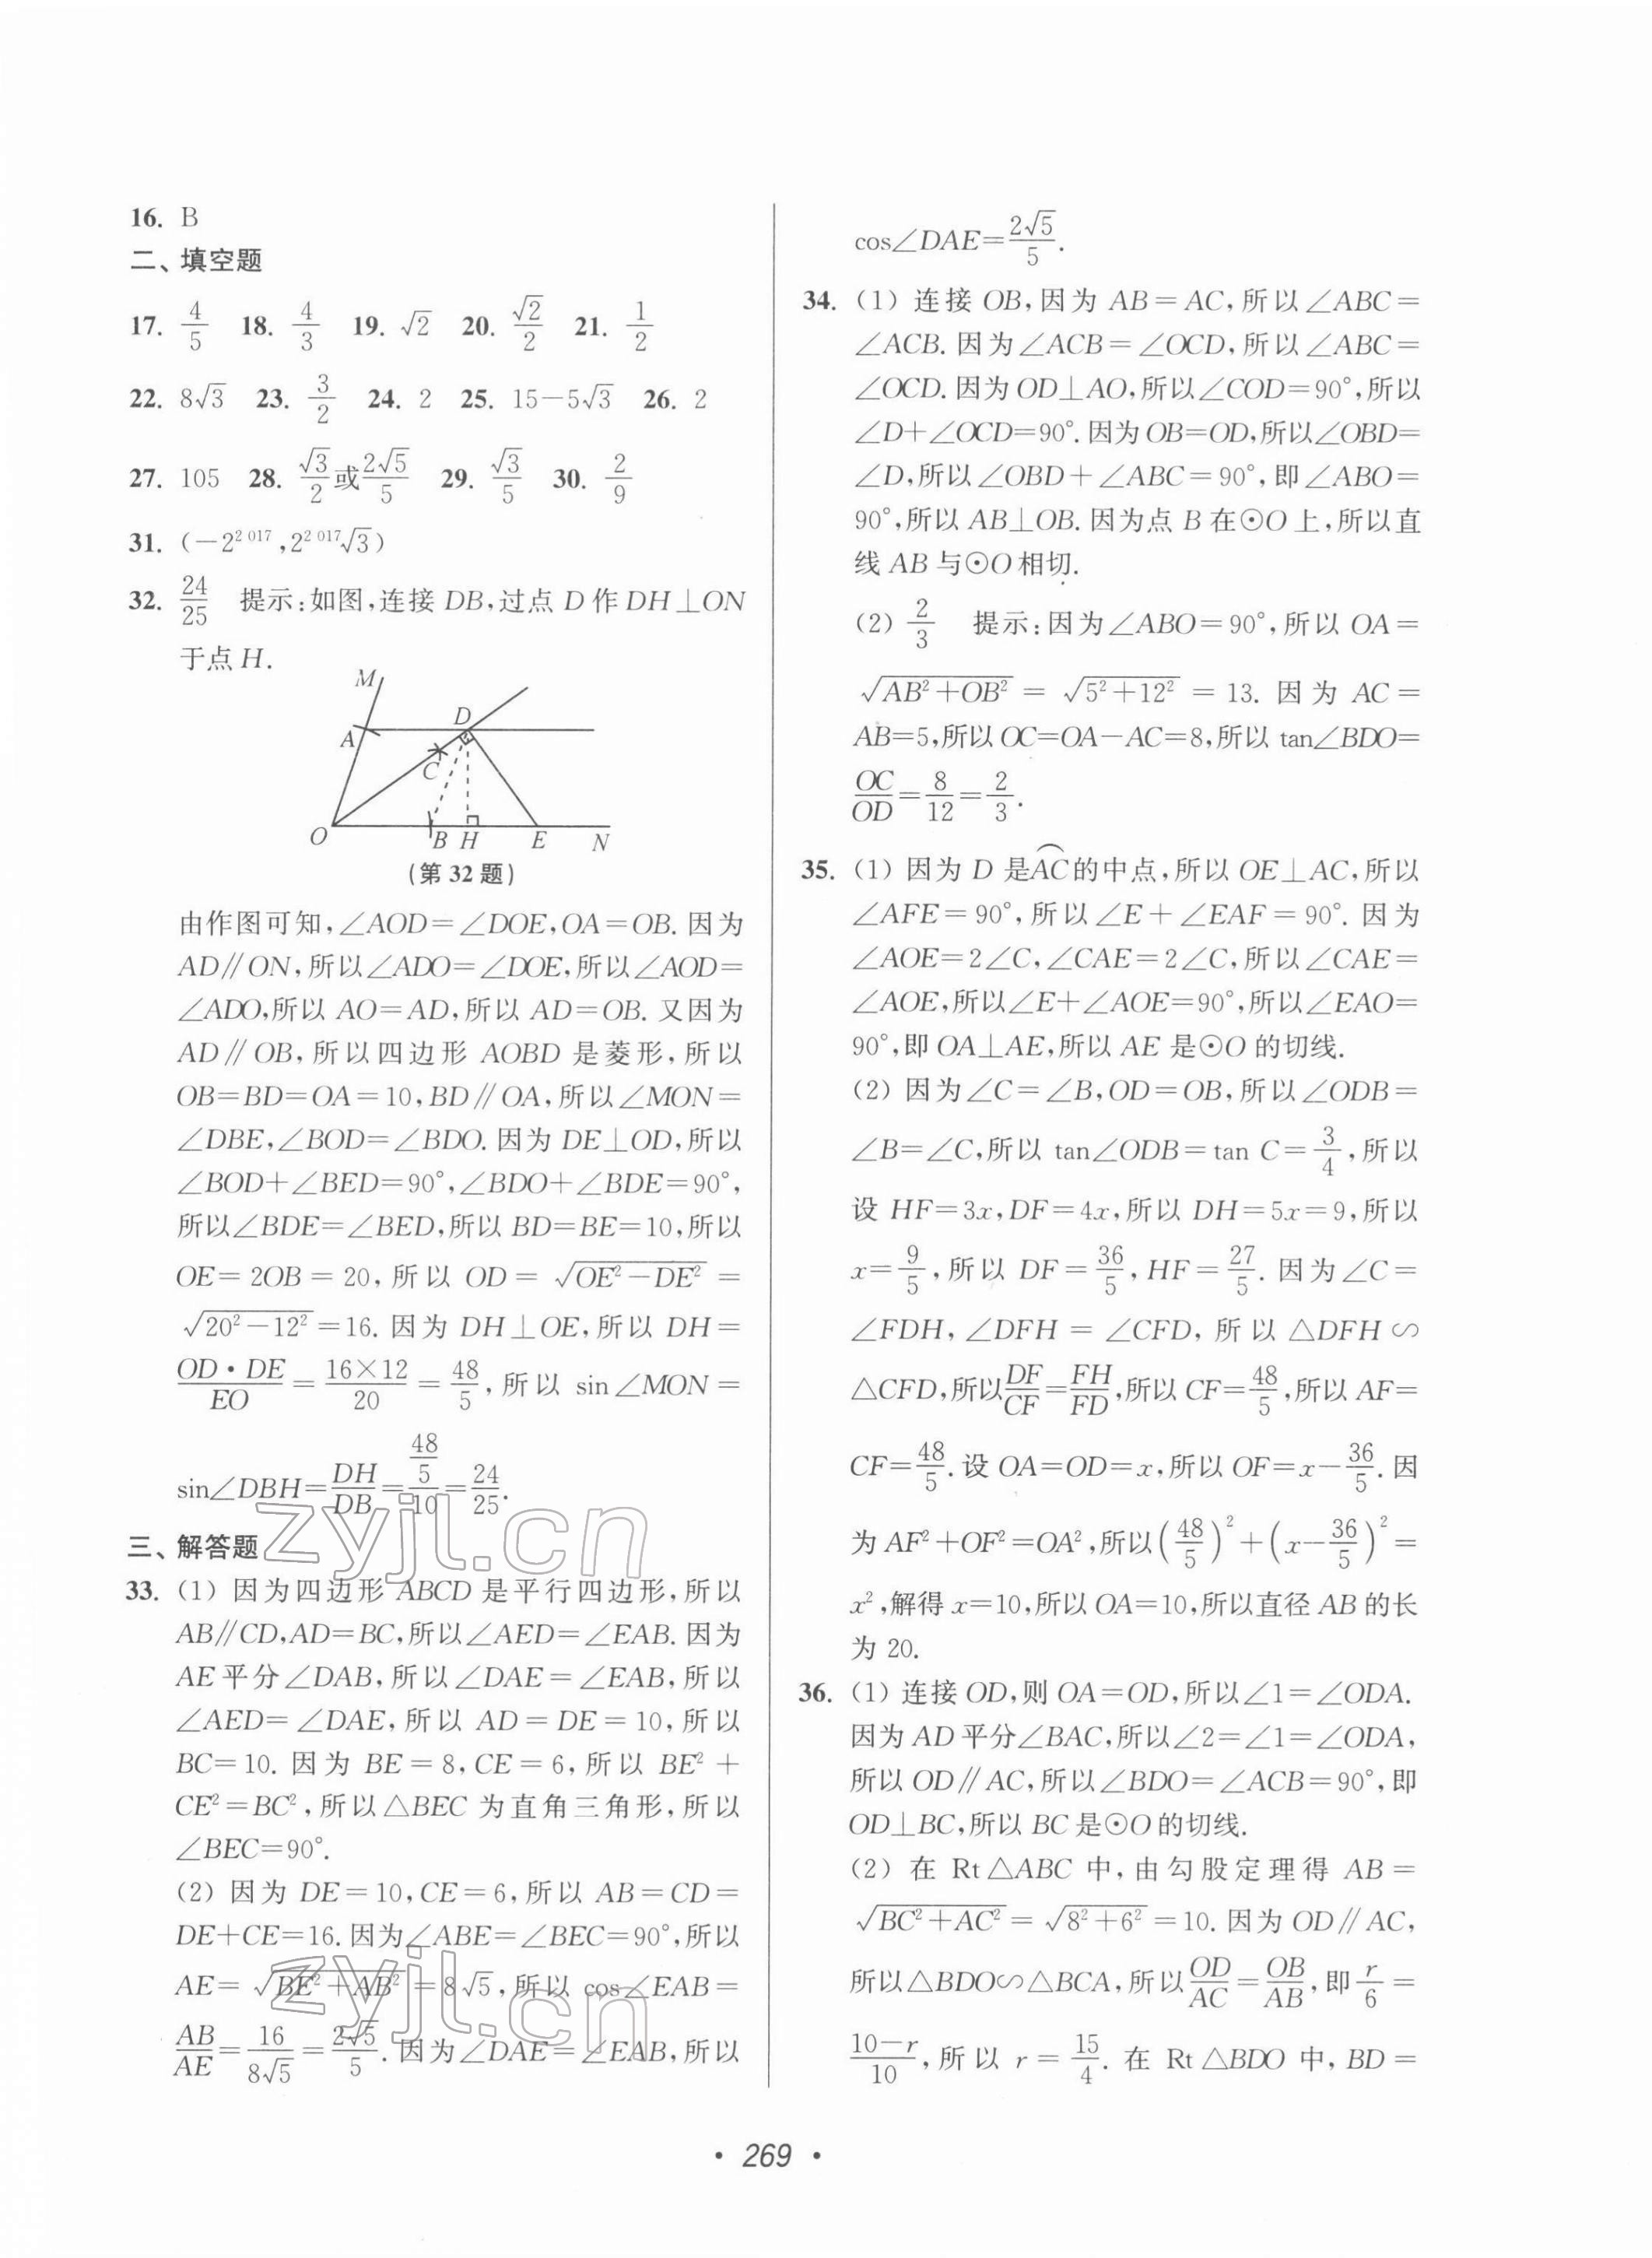 16. B
二、填空题
17. 4/5 18. 4/3 19. √2 20. √2/2 21. 1/2
22. 8√3 23. 3/2 24. 2 25. 15-5√3 26. 2
27. 105 28. √3/2或2√5/5 29. √3/5 30. 2/9
31. (-2^{2 017},2^{2 017}√3)
32. 24/25 提示:如图,连接 DB,过点 D 作 DH⊥ON
于点 H.
M
D
A
C
O
B H E N
(第 32 题)
由作图可知,∠AOD=∠DOE,OA=OB. 因为
AD∥ON,所以∠ADO=∠DOE,所以∠AOD=
∠ADO,所以 AO=AD,所以 AD=OB. 又因为
AD∥OB,所以四边形 AOBD 是菱形,所以
OB=BD=OA=10,BD∥OA,所以∠MON=
∠DBE,∠BOD=∠BDO. 因为 DE⊥OD,所以
∠BOD+∠BED=90°,∠BDO+∠BDE=90°,
所以∠BDE=∠BED,所以 BD=BE=10,所以
OE=2OB=20,所以 OD=√(OE²-DE²)=
√(20²-12²)=16. 因为 DH⊥OE,所以 DH=
OD·DE/EO=16×12/20=48/5,所以 sin∠MON=
sin∠DBH=DH/DB=(48/5)/10=24/25.
三、解答题
33. (1) 因为四边形 ABCD 是平行四边形,所以
AB∥CD,AD=BC,所以∠AED=∠EAB. 因为
AE 平分∠DAB,所以∠DAE=∠EAB,所以
∠AED=∠DAE,所以 AD=DE=10,所以
BC=10. 因为 BE=8,CE=6,所以 BE²+
CE²=BC²,所以△BEC 为直角三角形,所以
∠BEC=90°.
(2) 因为 DE=10,CE=6,所以 AB=CD=
DE+CE=16. 因为∠ABE=∠BEC=90°,所以
AE=√(BE²+AB²)=8√5,所以 cos∠EAB=
AB/AE=16/(8√5)=2√5/5. 因为∠DAE=∠EAB,所以
cos∠DAE=2√5/5.
34. (1) 连接 OB,因为 AB=AC,所以∠ABC=
∠ACB. 因为∠ACB=∠OCD,所以∠ABC=
∠OCD. 因为 OD⊥AO,所以∠COD=90°,所以
∠D+∠OCD=90°. 因为 OB=OD,所以∠OBD=
∠D,所以∠OBD+∠ABC=90°,即∠ABO=
90°,所以 AB⊥OB. 因为点 B 在⊙O 上,所以直
线 AB 与⊙O 相切.
(2) 2/3 提示:因为∠ABO=90°,所以 OA=
√(AB²+OB²)=√(5²+12²)=13. 因为 AC=
AB=5,所以 OC=OA-AC=8,所以 tan∠BDO=
OC/OD=8/12=2/3.
35. (1) 因为 D 是⌒AC的中点,所以 OE⊥AC,所以
∠AFE=90°,所以∠E+∠EAF=90°. 因为
∠AOE=2∠C,∠CAE=2∠C,所以∠CAE=
∠AOE,所以∠E+∠AOE=90°,所以∠EAO=
90°,即 OA⊥AE,所以 AE 是⊙O 的切线.
(2) 因为∠C=∠B,OD=OB,所以∠ODB=
∠B=∠C,所以 tan∠ODB=tan C=3/4,所以
设 HF=3x,DF=4x,所以 DH=5x=9,所以
x=9/5,所以 DF=36/5,HF=27/5. 因为∠C=
∠FDH,∠DFH=∠CFD,所以△DFH∽
△CFD,所以DF/CF=FH/FD,所以 CF=48/5,所以 AF=
CF=48/5. 设 OA=OD=x,所以 OF=x-36/5. 因
为 AF²+OF²=OA²,所以(48/5)²+(x-36/5)²=
x²,解得 x=10,所以 OA=10,所以直径 AB 的长
为 20.
36. (1) 连接 OD,则 OA=OD,所以∠1=∠ODA.
因为 AD 平分∠BAC,所以∠2=∠1=∠ODA,
所以 OD∥AC,所以∠BDO=∠ACB=90°,即
OD⊥BC,所以 BC 是⊙O 的切线.
(2) 在 Rt△ABC 中,由勾股定理得 AB=
√(BC²+AC²)=√(8²+6²)=10. 因为 OD∥AC,
所以△BDO∽△BCA,所以OD/AC=OB/AB,即r/6=
(10-r)/10,所以 r=15/4. 在 Rt△BDO 中,BD=
zyjl.cn
zyjl.cn
· 269 ·